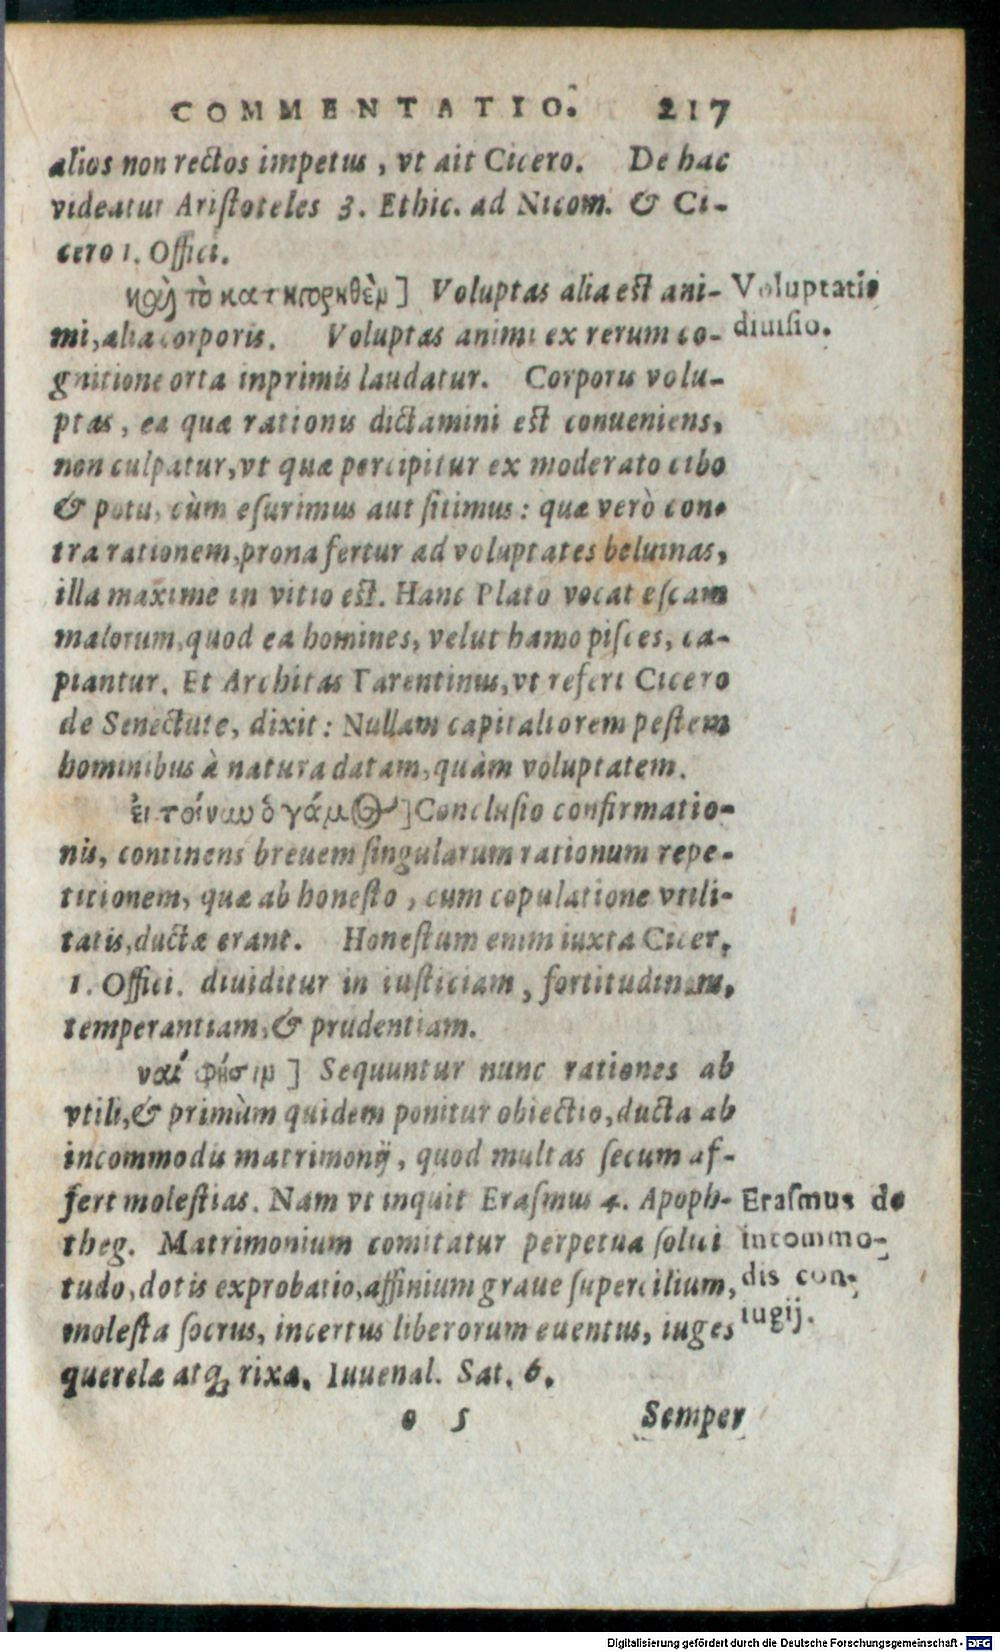 COMMENTATIO. 217
alios non rectos impetus, vt ait Cicero. De hac
videatur Aristoteles 3. Ethic. ad Nicom. & Ci-
cero 1. Offici.
καὶ τὸ κατηγορηθὲν] Voluptas alia est ani-
mi, alia corporis. Voluptas animi ex rerum co-
gnitione orta inprimis laudatur. Corporis volu-
ptas, ea quæ rationis dictamini est conueniens,
non culpatur, vt quæ percipitur ex moderato cibo
& potu, cùm esurimus aut sitimus: quæ verò con-
tra rationem, prona fertur ad voluptates beluinas,
illa maxime in vitio est. Hanc Plato vocat escam
malorum, quod ea homines, velut hamo pisces, ca-
piantur. Et Architas Tarentinus, vt refert Cicero
de Senectute, dixit: Nullam capitaliorem pestem
hominibus à natura datam, quàm voluptatem.
Voluptatis
diuisio.
εἰ τοίνυν ὁ γάμος] Conclusio confirmatio-
nis, continens breuem singularum rationum repe-
titionem, quæ ab honesto, cum copulatione vtili-
tatis, ductæ erant. Honestum enim iuxta Cicer,
1. Offici. diuiditur in iusticiam, fortitudinem,
temperantiam, & prudentiam.
ναί φησιν] Sequuntur nunc rationes ab
vtili, & primùm quidem ponitur obiectio, ducta ab
incommodis matrimonij, quod multas secum af-
fert molestias. Nam vt inquit Erasmus 4. Apoph-
theg. Matrimonium comitatur perpetua solici
tudo, dotis exprobatio, affinium graue supercilium,
molesta socrus, incertus liberorum euentus, iuges
querelæ atq; rixæ. Iuuenal. Sat. 6.
Erasmus de
incommo-
dis con-
iugij.
o 5 Semper
Digitalisierung gefördert durch die Deutsche Forschungsgemeinschaft - DFG